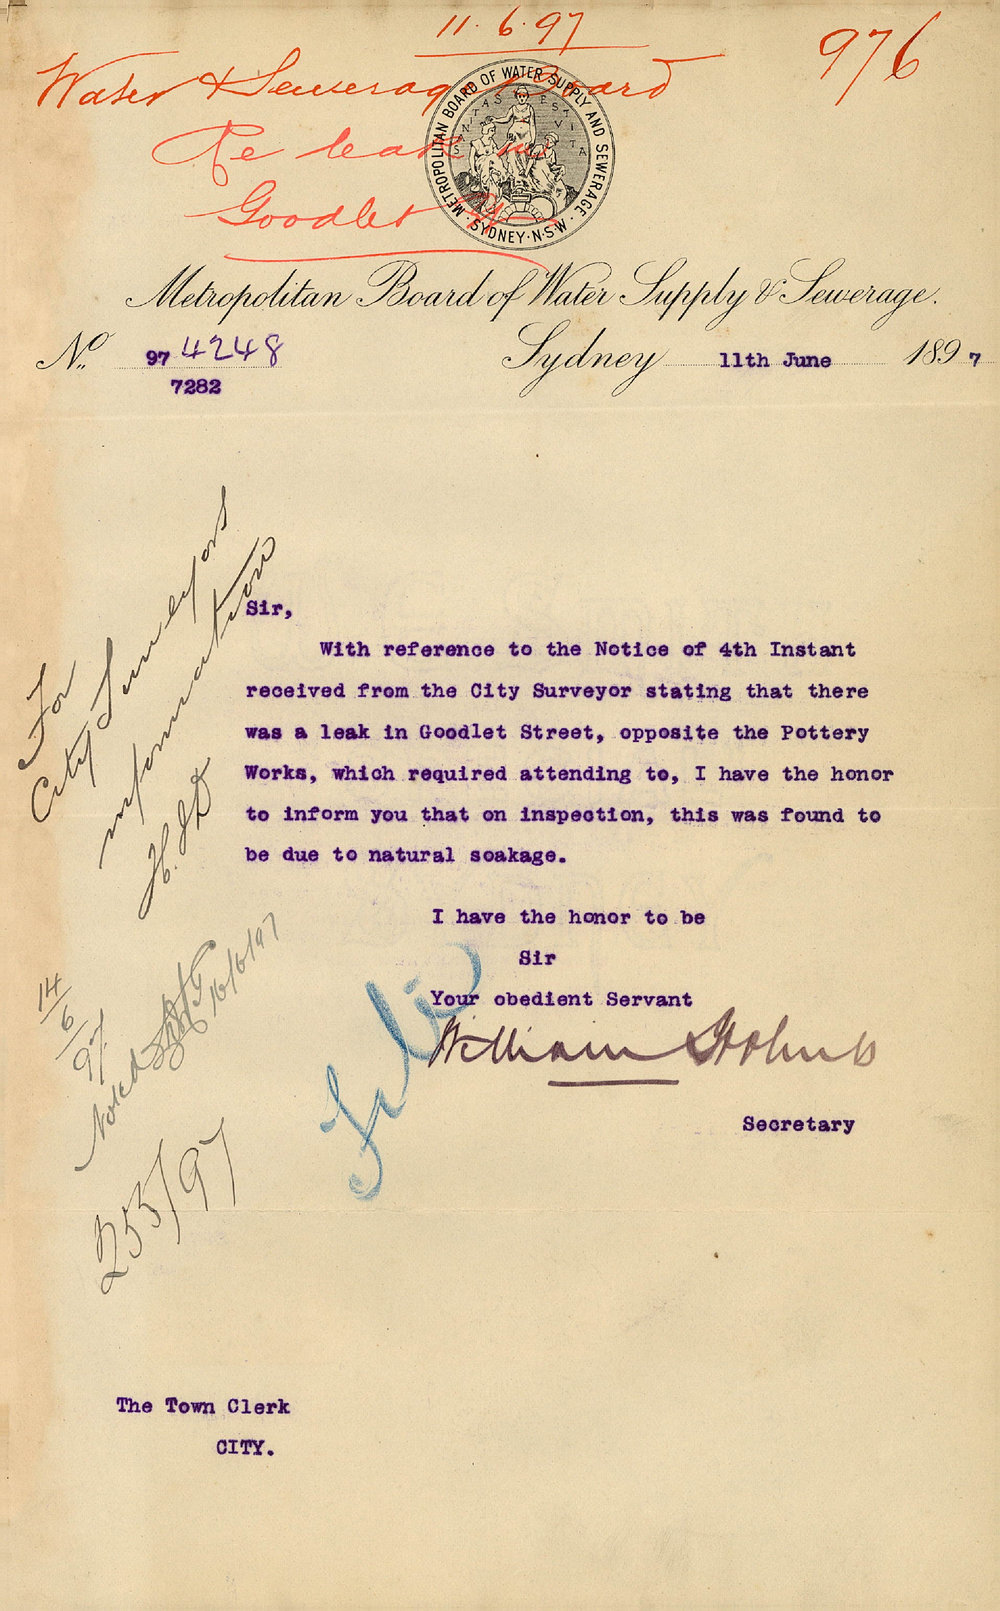 11.6.97
976
Water & Sewerage Board
Re leak in
Goodlet St
METROPOLITAN BOARD OF WATER SUPPLY AND SEWERAGE.
SANITAS EST VITA
SYDNEY.N.S.W.
Metropolitan Board of Water Supply & Sewerage.
No. 97 4248
7282
Sydney 11th June 1897
Sir,
With reference to the Notice of 4th Instant
received from the City Surveyor stating that there
was a leak in Goodlet Street, opposite the Pottery
Works, which required attending to, I have the honor
to inform you that on inspection, this was found to
be due to natural soakage.
I have the honor to be
Sir
Your obedient Servant
William Holmes
Secretary
For
City Surveyors
information
14/6/97
Noted
16/6/97
253/97
File
The Town Clerk
CITY.